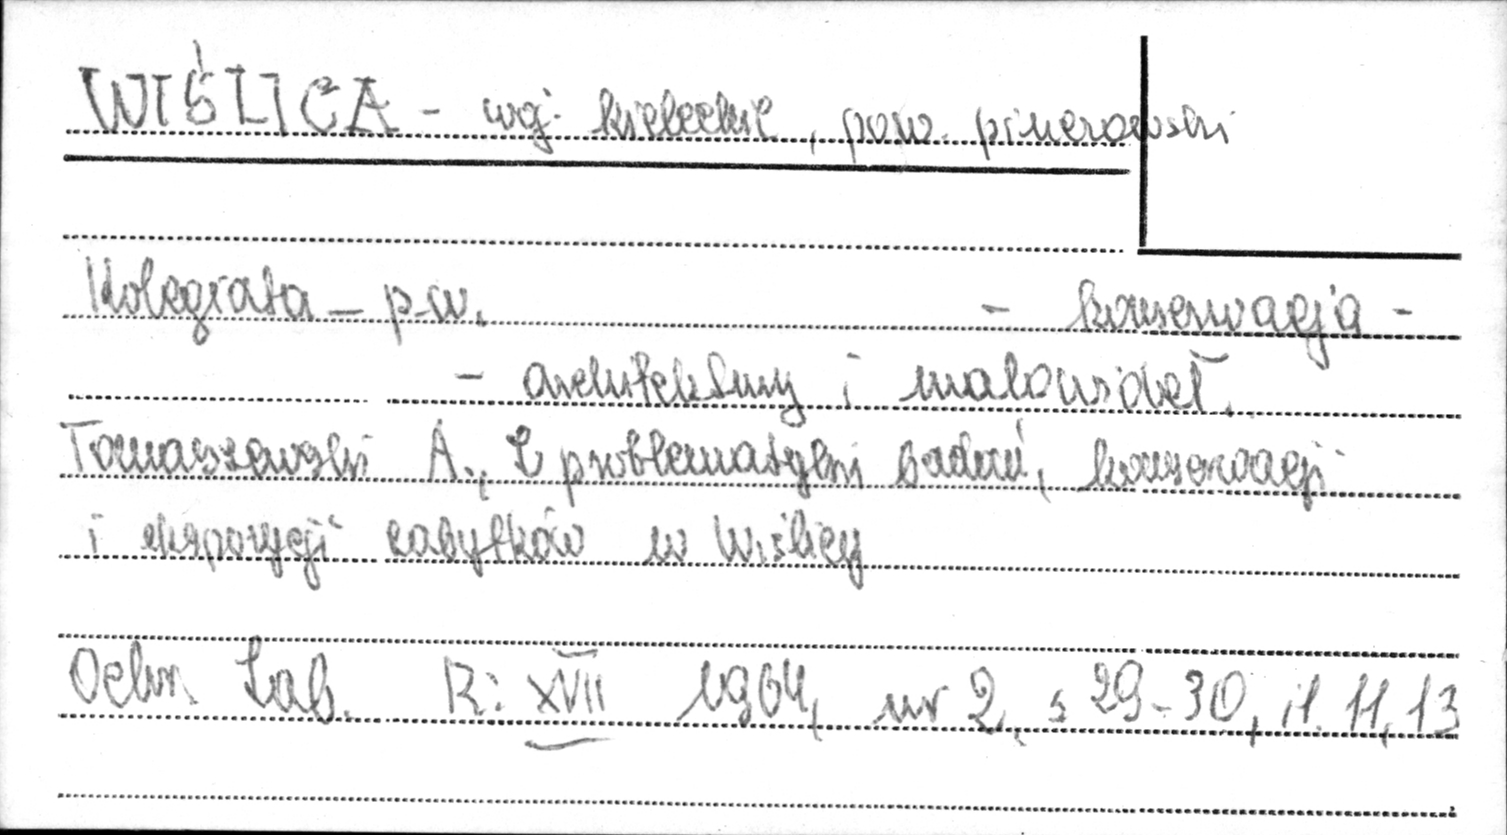 WIŚLICA - woj. kieleckie, pow. pińczowski
Kolegiata - p.w. - konserwacja -
- architektury i malowideł.
Tomaszewski A., Z problematyki badań, konserwacji
i ekspozycji zabytków w Wiślicy
Ochr. Zab. R: XVII 1964, nr 2, s 29-30, il. 11, 13